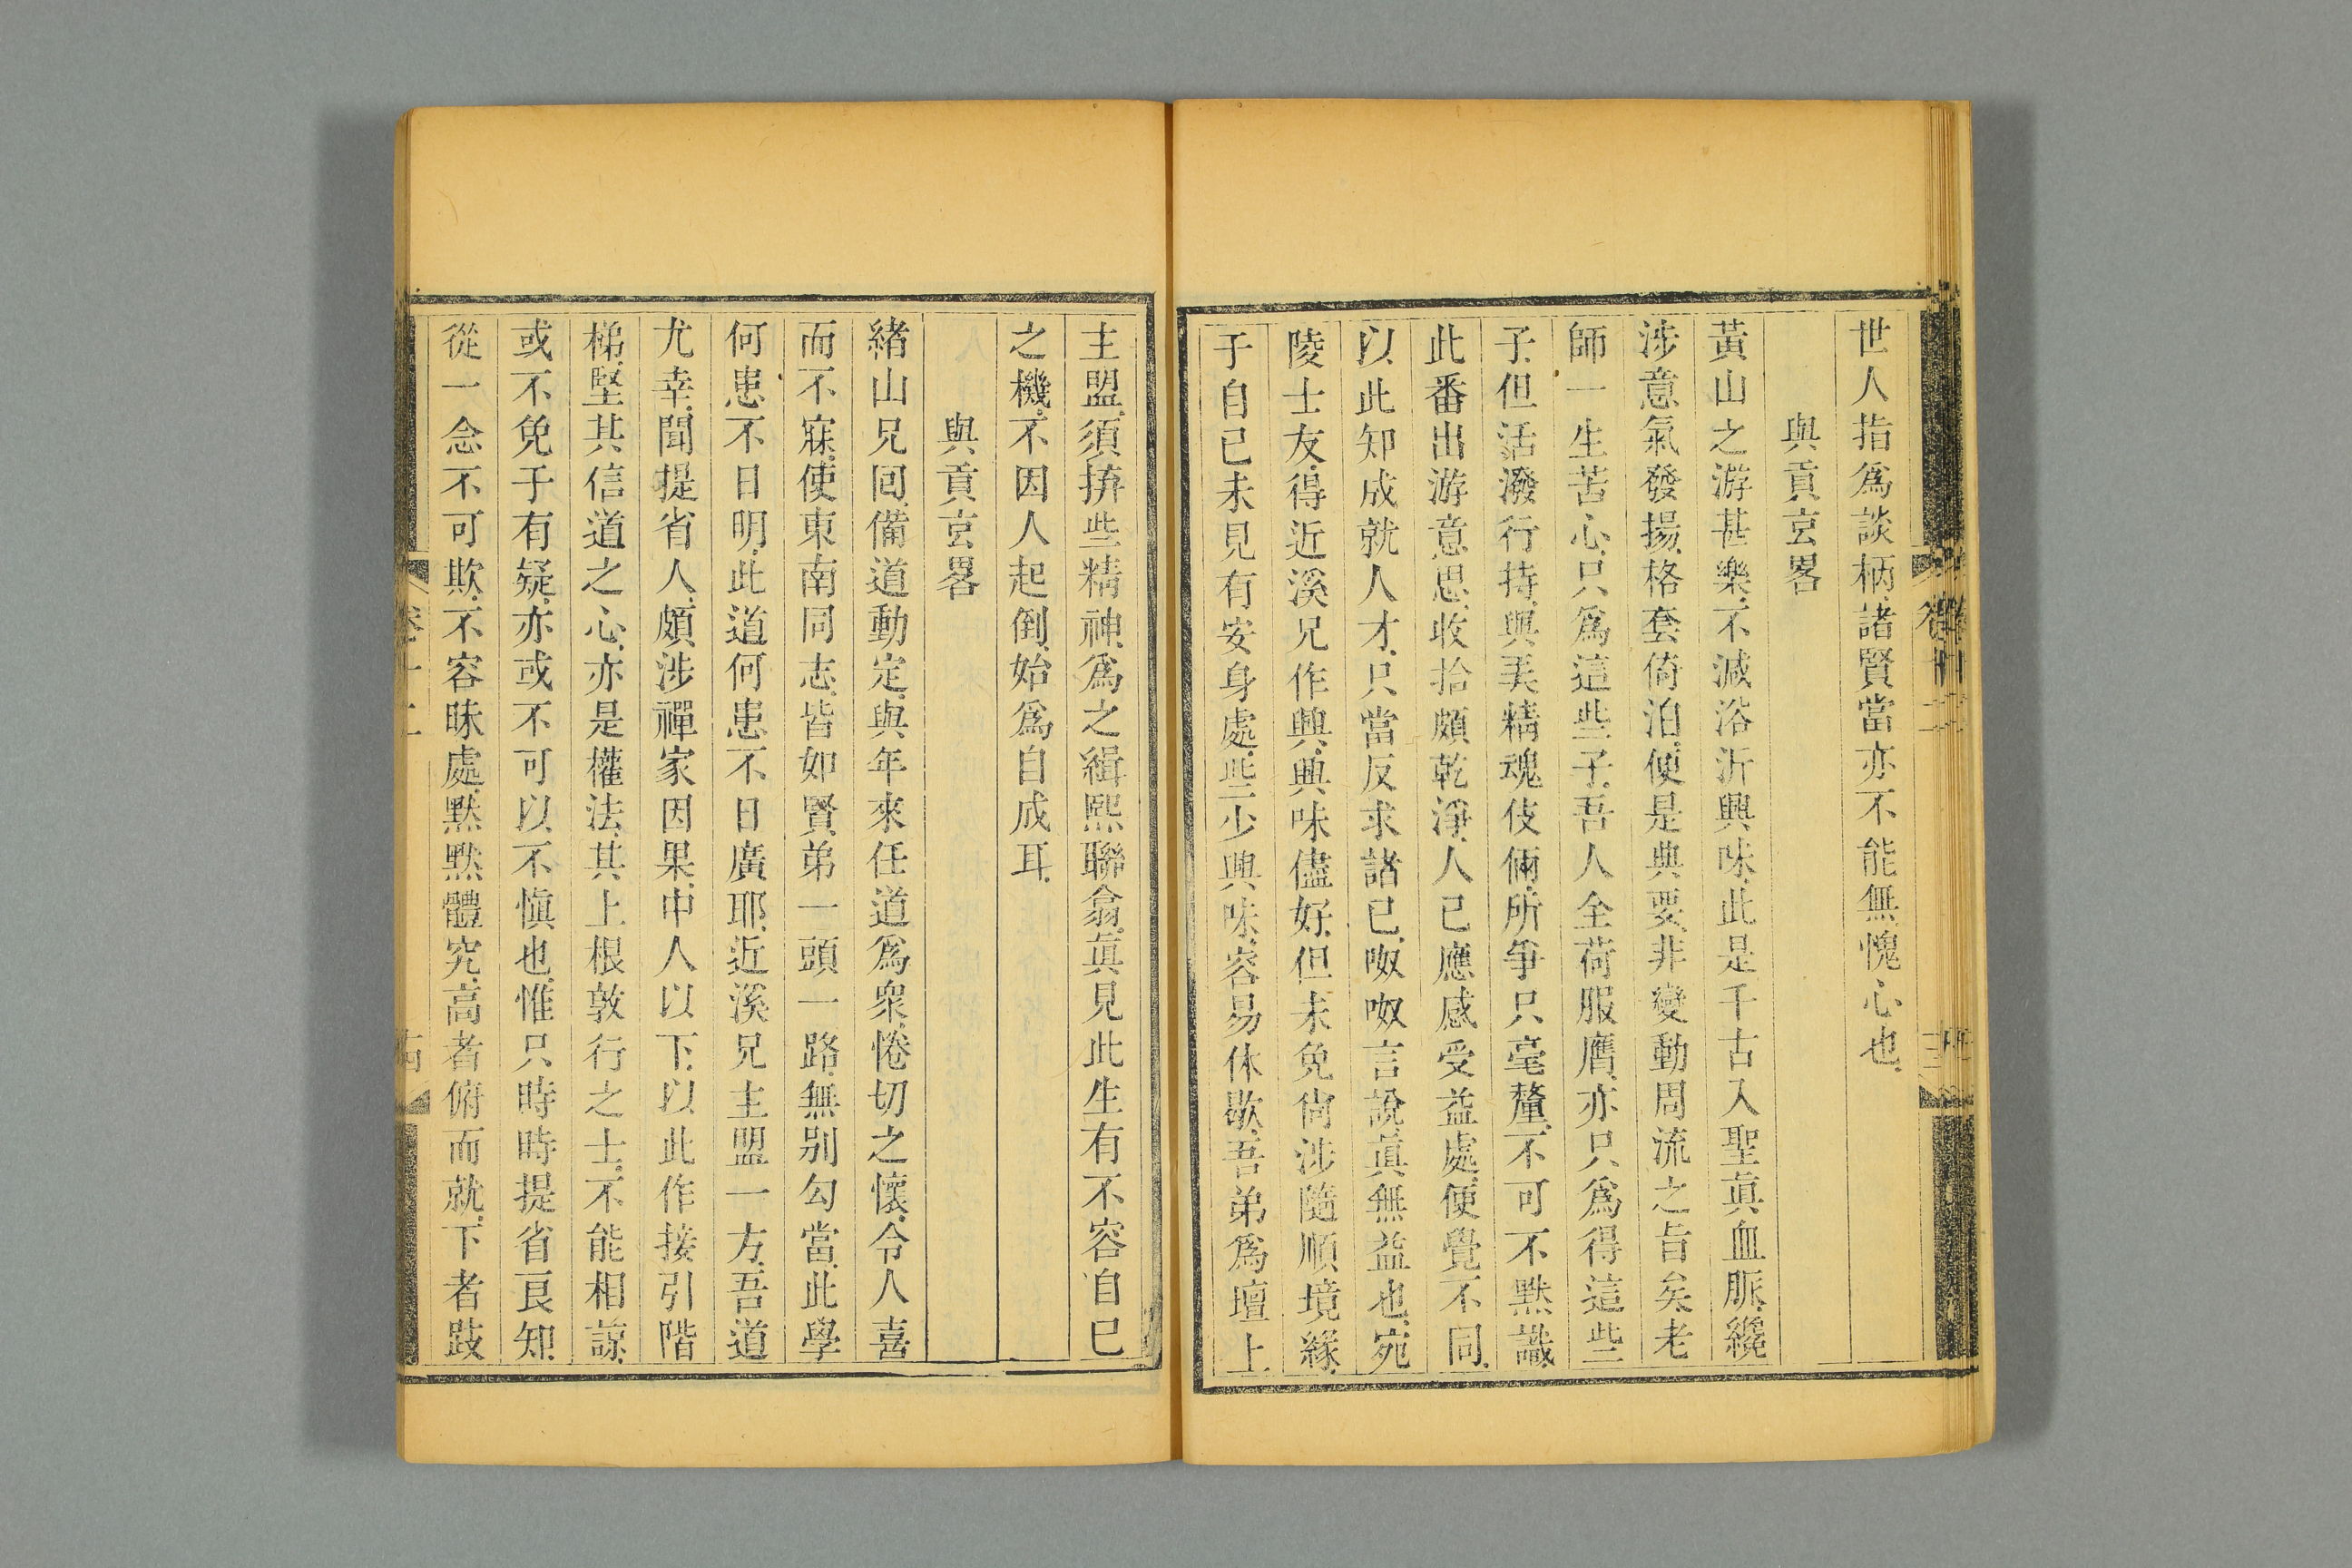 世人指爲談柄諸賢當亦不能無愧心也
與貢玄畧
黃山之游甚樂不減浴沂興味此是千古入聖眞血脈纔
涉意氣發揚格套倚泊便是典要非變動周流之旨矣老
師一生苦心只爲這些子吾人全荷服膺亦只爲得這些
子但活潑行持與美精魂伎倆所爭只毫釐不可不默識
此番出游意思收拾頗乾淨人已應感受益處便覺不同
以此知成就人才只當反求諸已呶呶言說眞無益也宛
陵士友得近溪兄作興興味儘好但未免尙涉隨順境緣
于自已未見有安身處些少興味容易休歇吾弟爲壇上
主盟須拚些精神爲之緝熙聯翕眞見此生有不容自已
之機不因人起倒始爲自成耳
與貢玄畧
緒山兄囘備道動定與年來任道爲衆惓切之懷令人喜
而不寐使東南同志皆如賢弟一頭一路無别勾當此學
何患不日明此道何患不日廣耶近溪兄主盟一方吾道
尤幸聞提省人頗涉禪家因果中人以下以此作接引階
梯堅其信道之心亦是權法其上根敦行之士不能相諒
或不免于有疑亦或不可以不愼也惟只時時提省良知
從一念不可欺不容昧處默默體究高者俯而就下者跂
卷十二